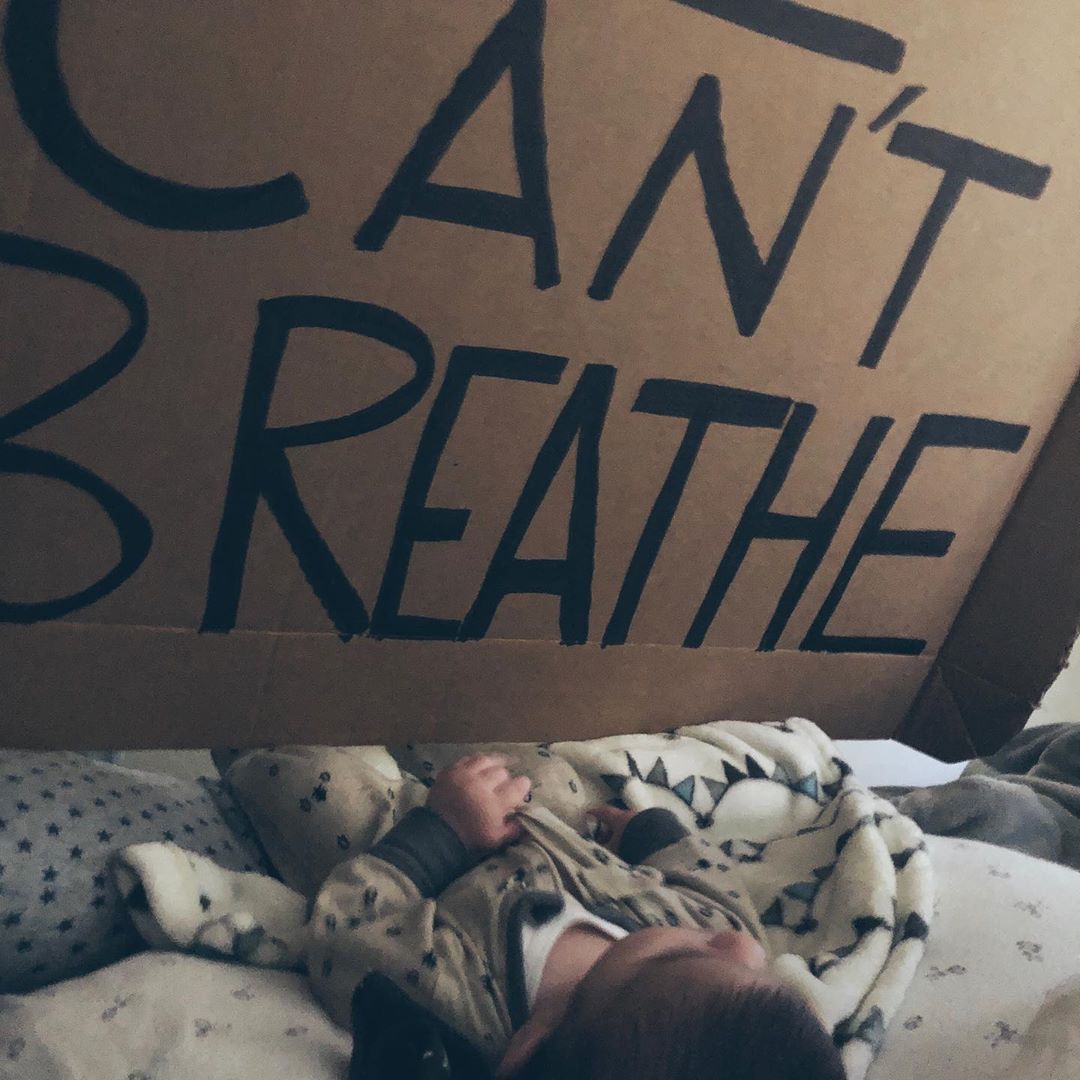 CAN'T
BREATHE